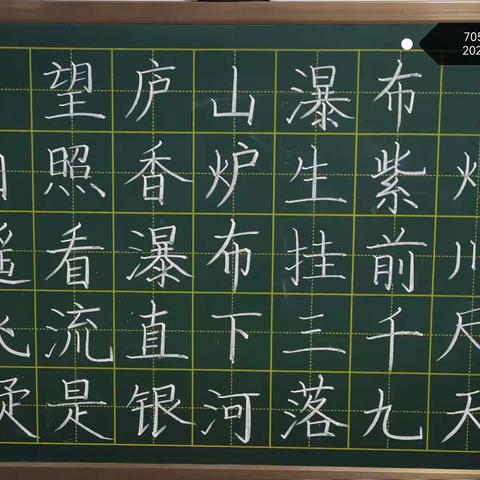 望庐山瀑布
日照香炉生紫
遥看瀑布挂前川
飞流直下三千尺
疑是银河落九天
705
202